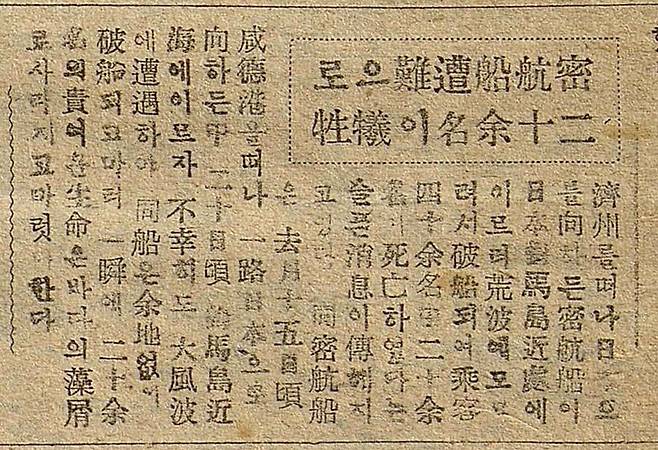 密航船遭難으로
二十余名이犧牲
濟州를떠나日本
를向하든密航船이
日本對馬島近處에
이르러荒波에
려서破船되여乘客
四十余名中二十余
名이死亡하였다는
슬픈消息이傳해지
고있다 同密航船
은 去月十五日頃
咸德港을떠나 一路日本으로
向하든中 二十日頃 對馬島近
海에이르자 不幸히도 大風波
에遭遇하야 同船은余地없이
破船되고마러 一瞬에 二十余
名의貴여운生命은바다의藻屑
로사라지고마럿다한다